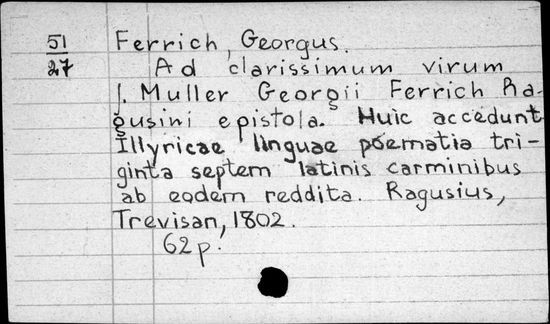 51 Ferrich, Georgus.
27 Ad clarissimum virum
I. Muller Georgii Ferrich Ra-
gusini epistola. Huic accedunt
Illyricae linguae poematia tri-
ginta septem latinis carminibus
ab eodem reddita. Ragusius,
Trevisan, 1802.
62 p.